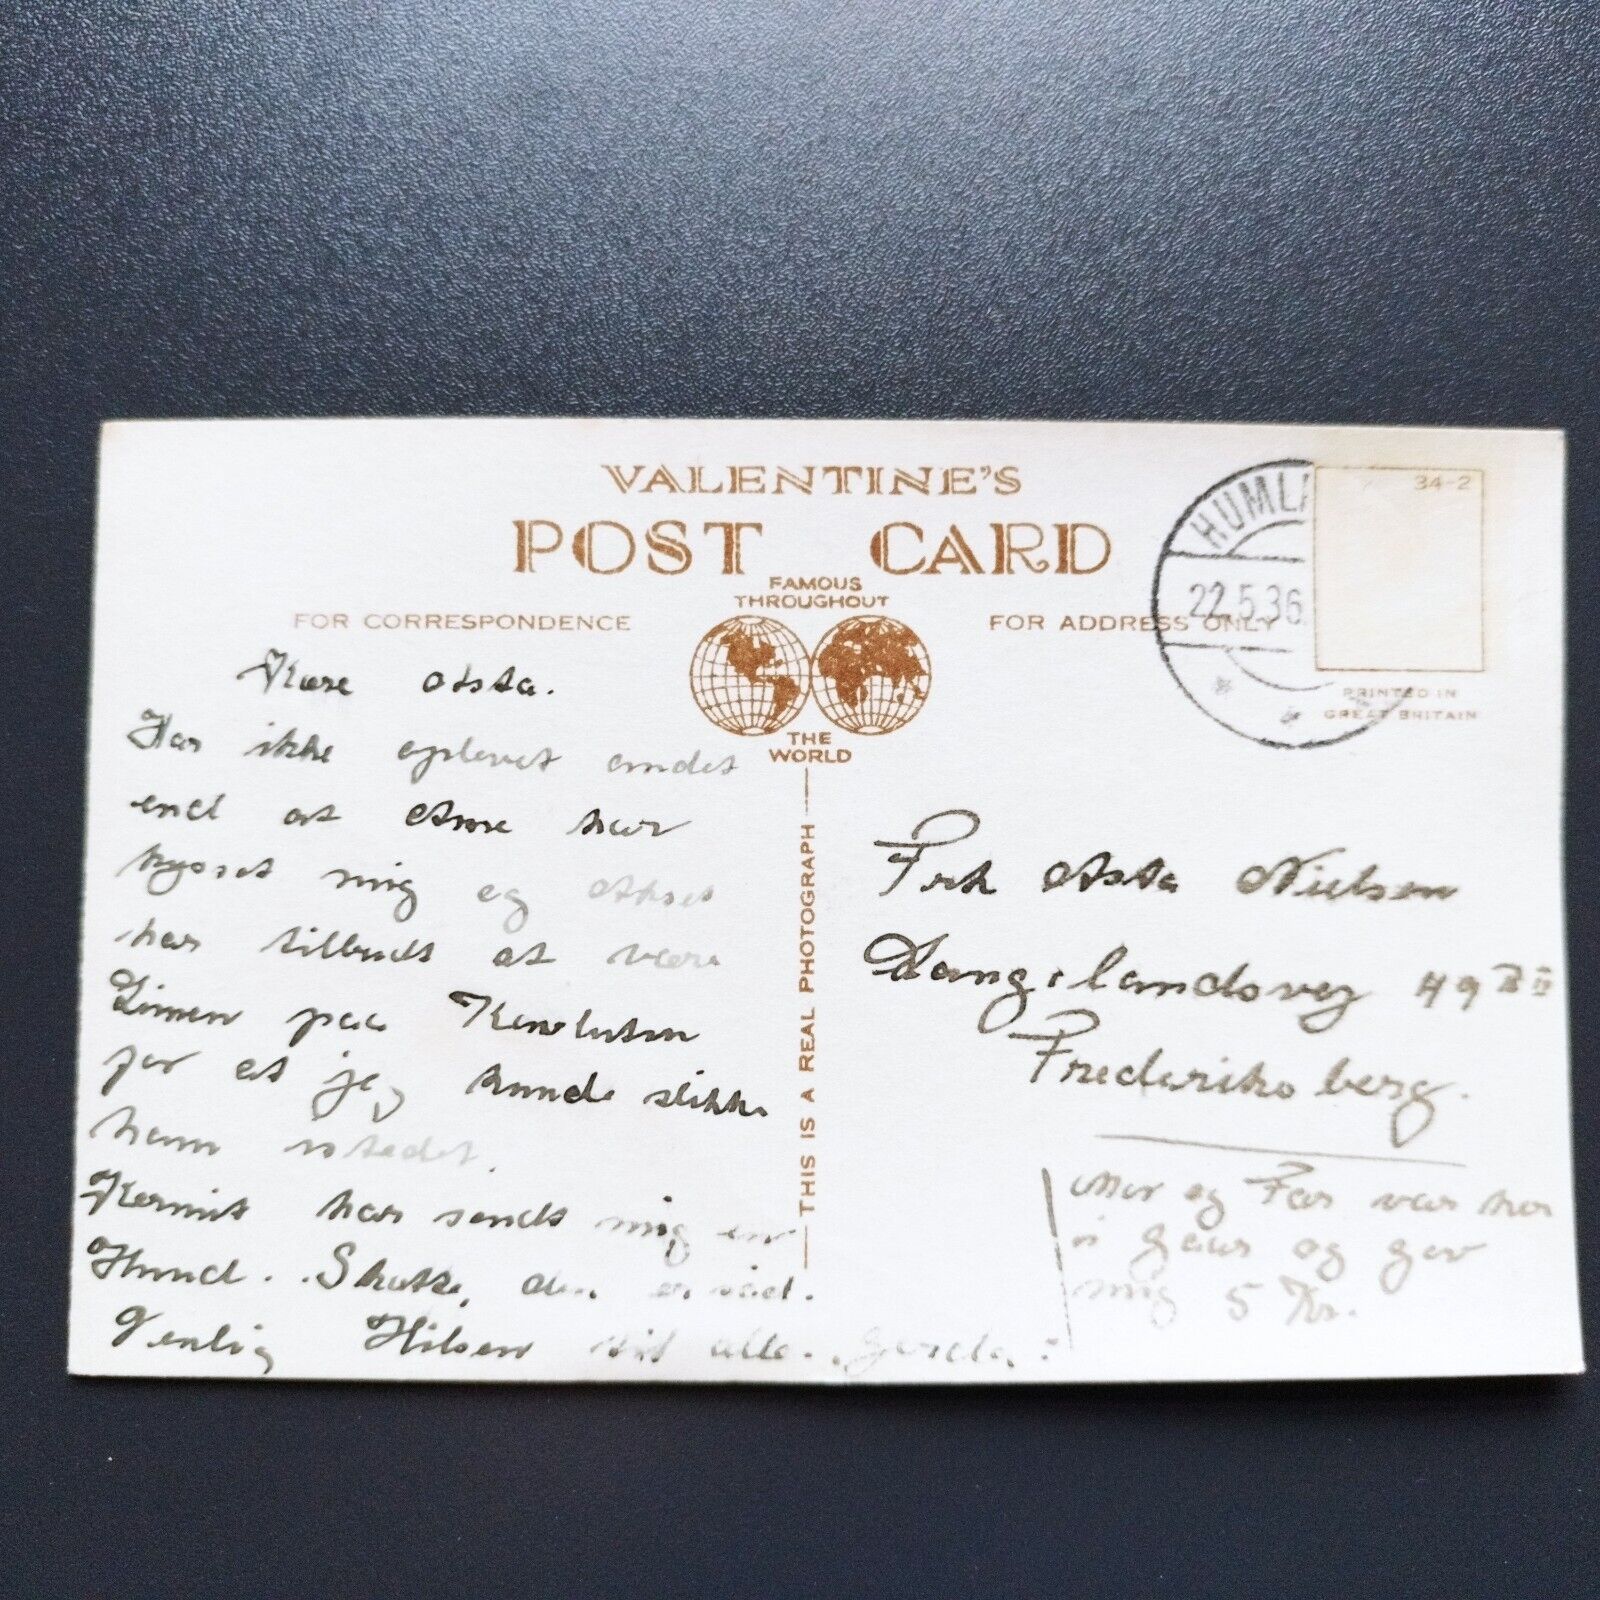 VALENTINE'S
POST CARD
FAMOUS
THROUGHOUT
THE
WORLD
FOR CORRESPONDENCE
FOR ADDRESS ONLY
THIS IS A REAL PHOTOGRAPH
34-2
PRINTED IN
GREAT BRITAIN
HUML
22.5.36
Kære Asta.
Har ikke oplevet andet
end at Arne har
kysset mig og
har tilbudt at være
Limen paa
for at jeg kunde slikke
ham istedet.
Kermit har sendt mig en
Hund. Skotte, den er sød.
Venlig Hilsen til alle. Gerda.
Frk Asta Nielsen
landsvej 49
Frederiksberg.
Mor og Far var her
i Gaar og gav
mig 5 Kr.